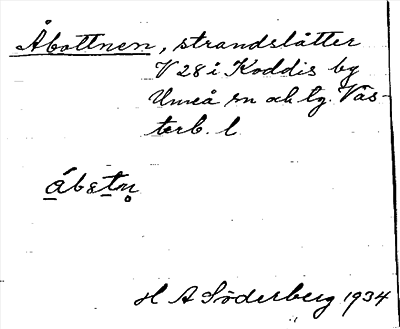 Åbottnen, strandslåtter
V 28 i Koddis by
Umeå sn och tg. Väs-
terb. l
ábstn̥
H A Söderberg 1934